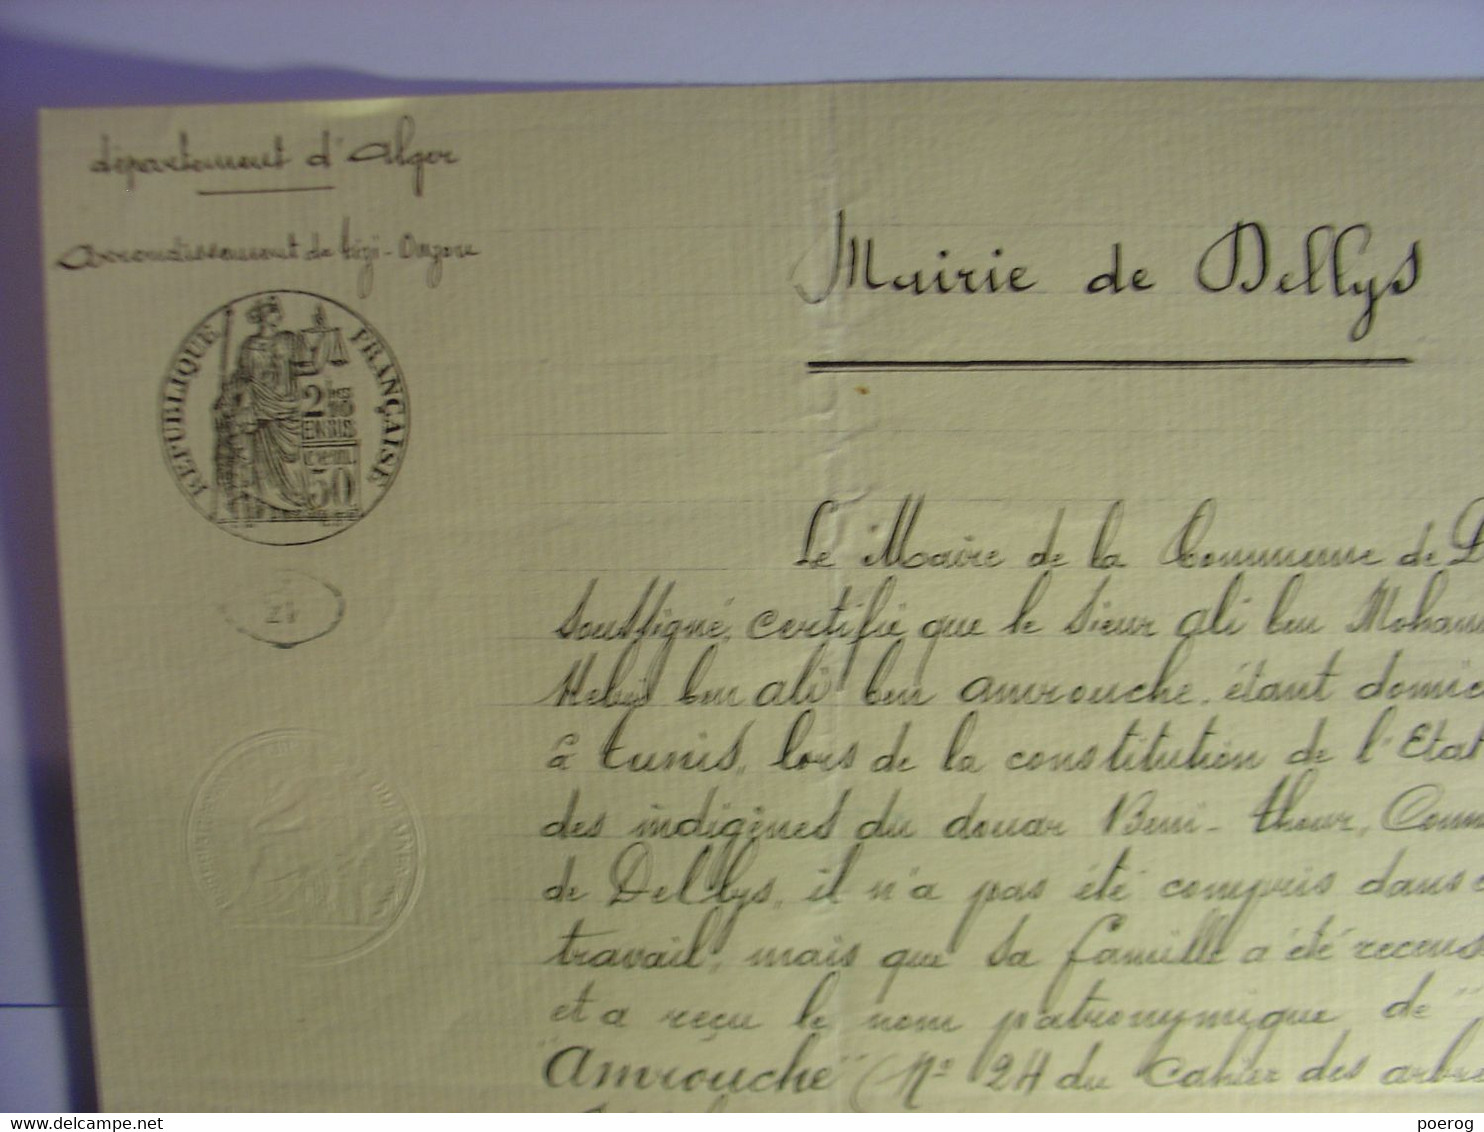 département d'Alger
Arrondissement de Tizi-Ouzou
RÉPUBLIQUE FRANÇAISE
2/10
EN SUS
CENT.
50
Mairie de Dellys
Le Maire de la Commune de D
Soussigné, certifie que le sieur Ali ben Moham
ben ali ben amrouche, étant domic
à Tunis, lors de la constitution de l'Etat
des indigènes du douar Beni-thour, Comm
de Dellys, il n'a pas été compris dans c
travail, mais que sa famille a été recens
et a reçu le nom patronymique de "
"Amrouche" (N° 24 du Cahier des arbre
poerog